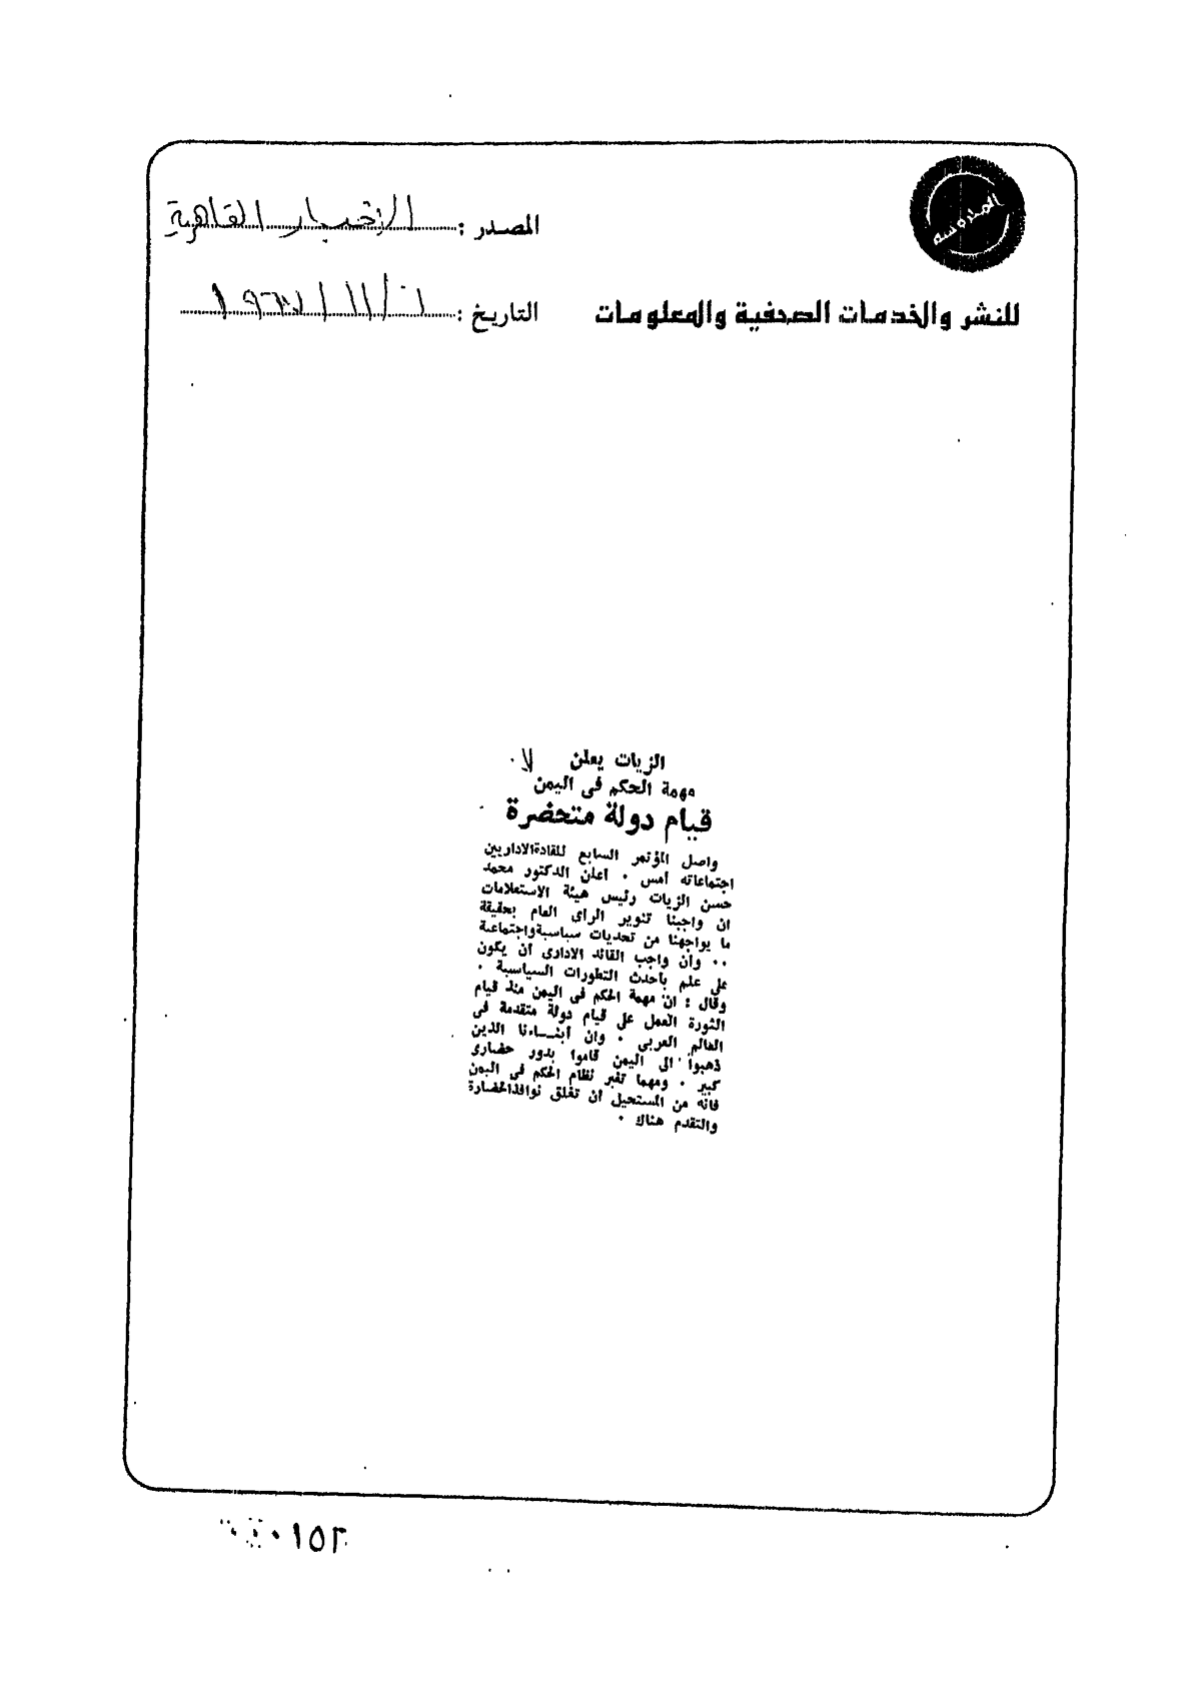 المصدر : الاخبار القاهرية
للنشر والخدمات الصحفية والمعلومات
التاريخ : ١٩٦٧/١١/
الزيات يعلن
مهمة الحكم فى اليمن
قيام دولة متحضرة
واصل المؤتمر السابع للقادة الاداريين
اجتماعاته أمس . أعلن الدكتور محمد
حسن الزيات رئيس هيئة الاستعلامات
ان واجبنا تنوير الراى العام بحقيقة
ما يواجهنا من تحديات سياسية واجتماعية
.. وان واجب القائد الادارى أن يكون
على علم بأحدث التطورات السياسية .
وقال : ان مهمة الحكم فى اليمن منذ قيام
الثورة العمل على قيام دولة متقدمة فى
العالم العربى . وان أبنــاءنا الذين
ذهبوا الى اليمن قاموا بدور حضارى
كبير . ومهما تغير نظام الحكم فى اليمن
فانه من المستحيل أن تغلق نوافذ الحضارة
والتقدم هناك .